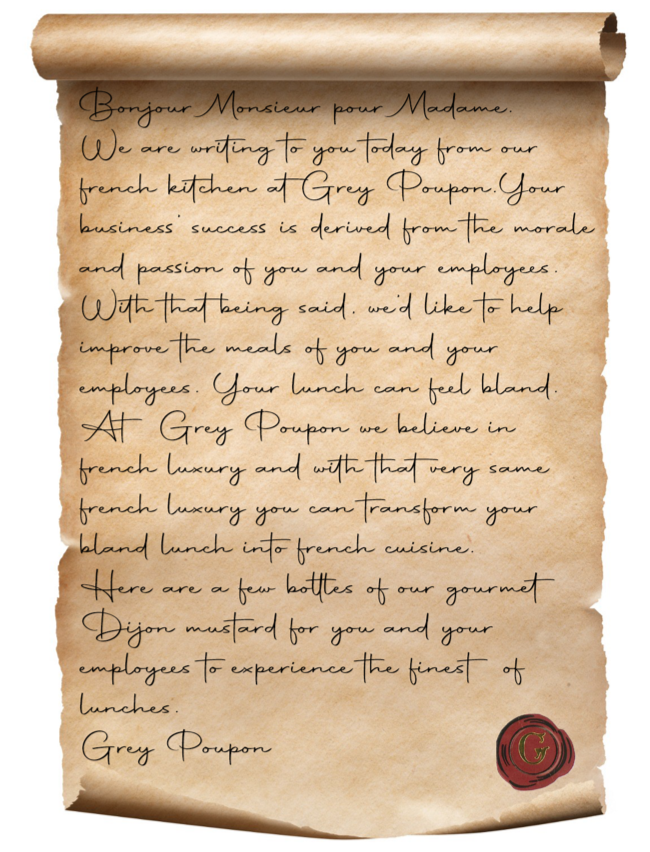 Bonjour Monsieur pour Madame.
We are writing to you today from our
french kitchen at Grey Poupon. Your
business' success is derived from the morale
and passion of you and your employees.
With that being said, we'd like to help
improve the meals of you and your
employees. Your lunch can feel bland.
At Grey Poupon we believe in
french luxury and with that very same
french luxury you can transform your
bland lunch into french cuisine.
Here are a few bottles of our gourmet
Dijon mustard for you and your
employees to experience the finest of
lunches.
Grey Poupon
G